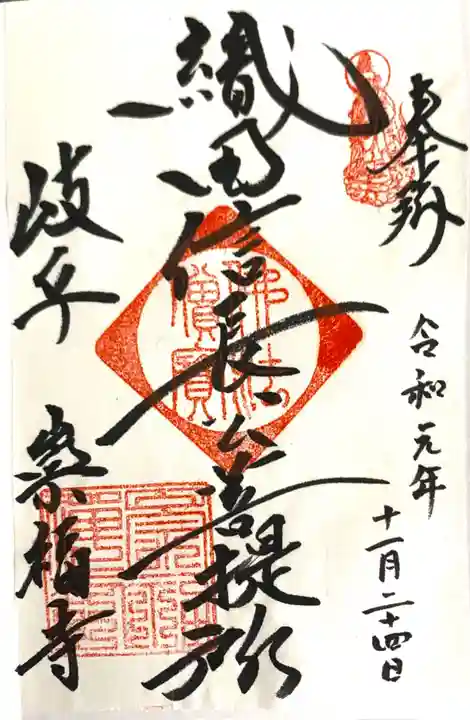 奉拝
令和元年
十一月二十四日
織田信長公菩提所
岐阜
崇福寺
佛法僧寳